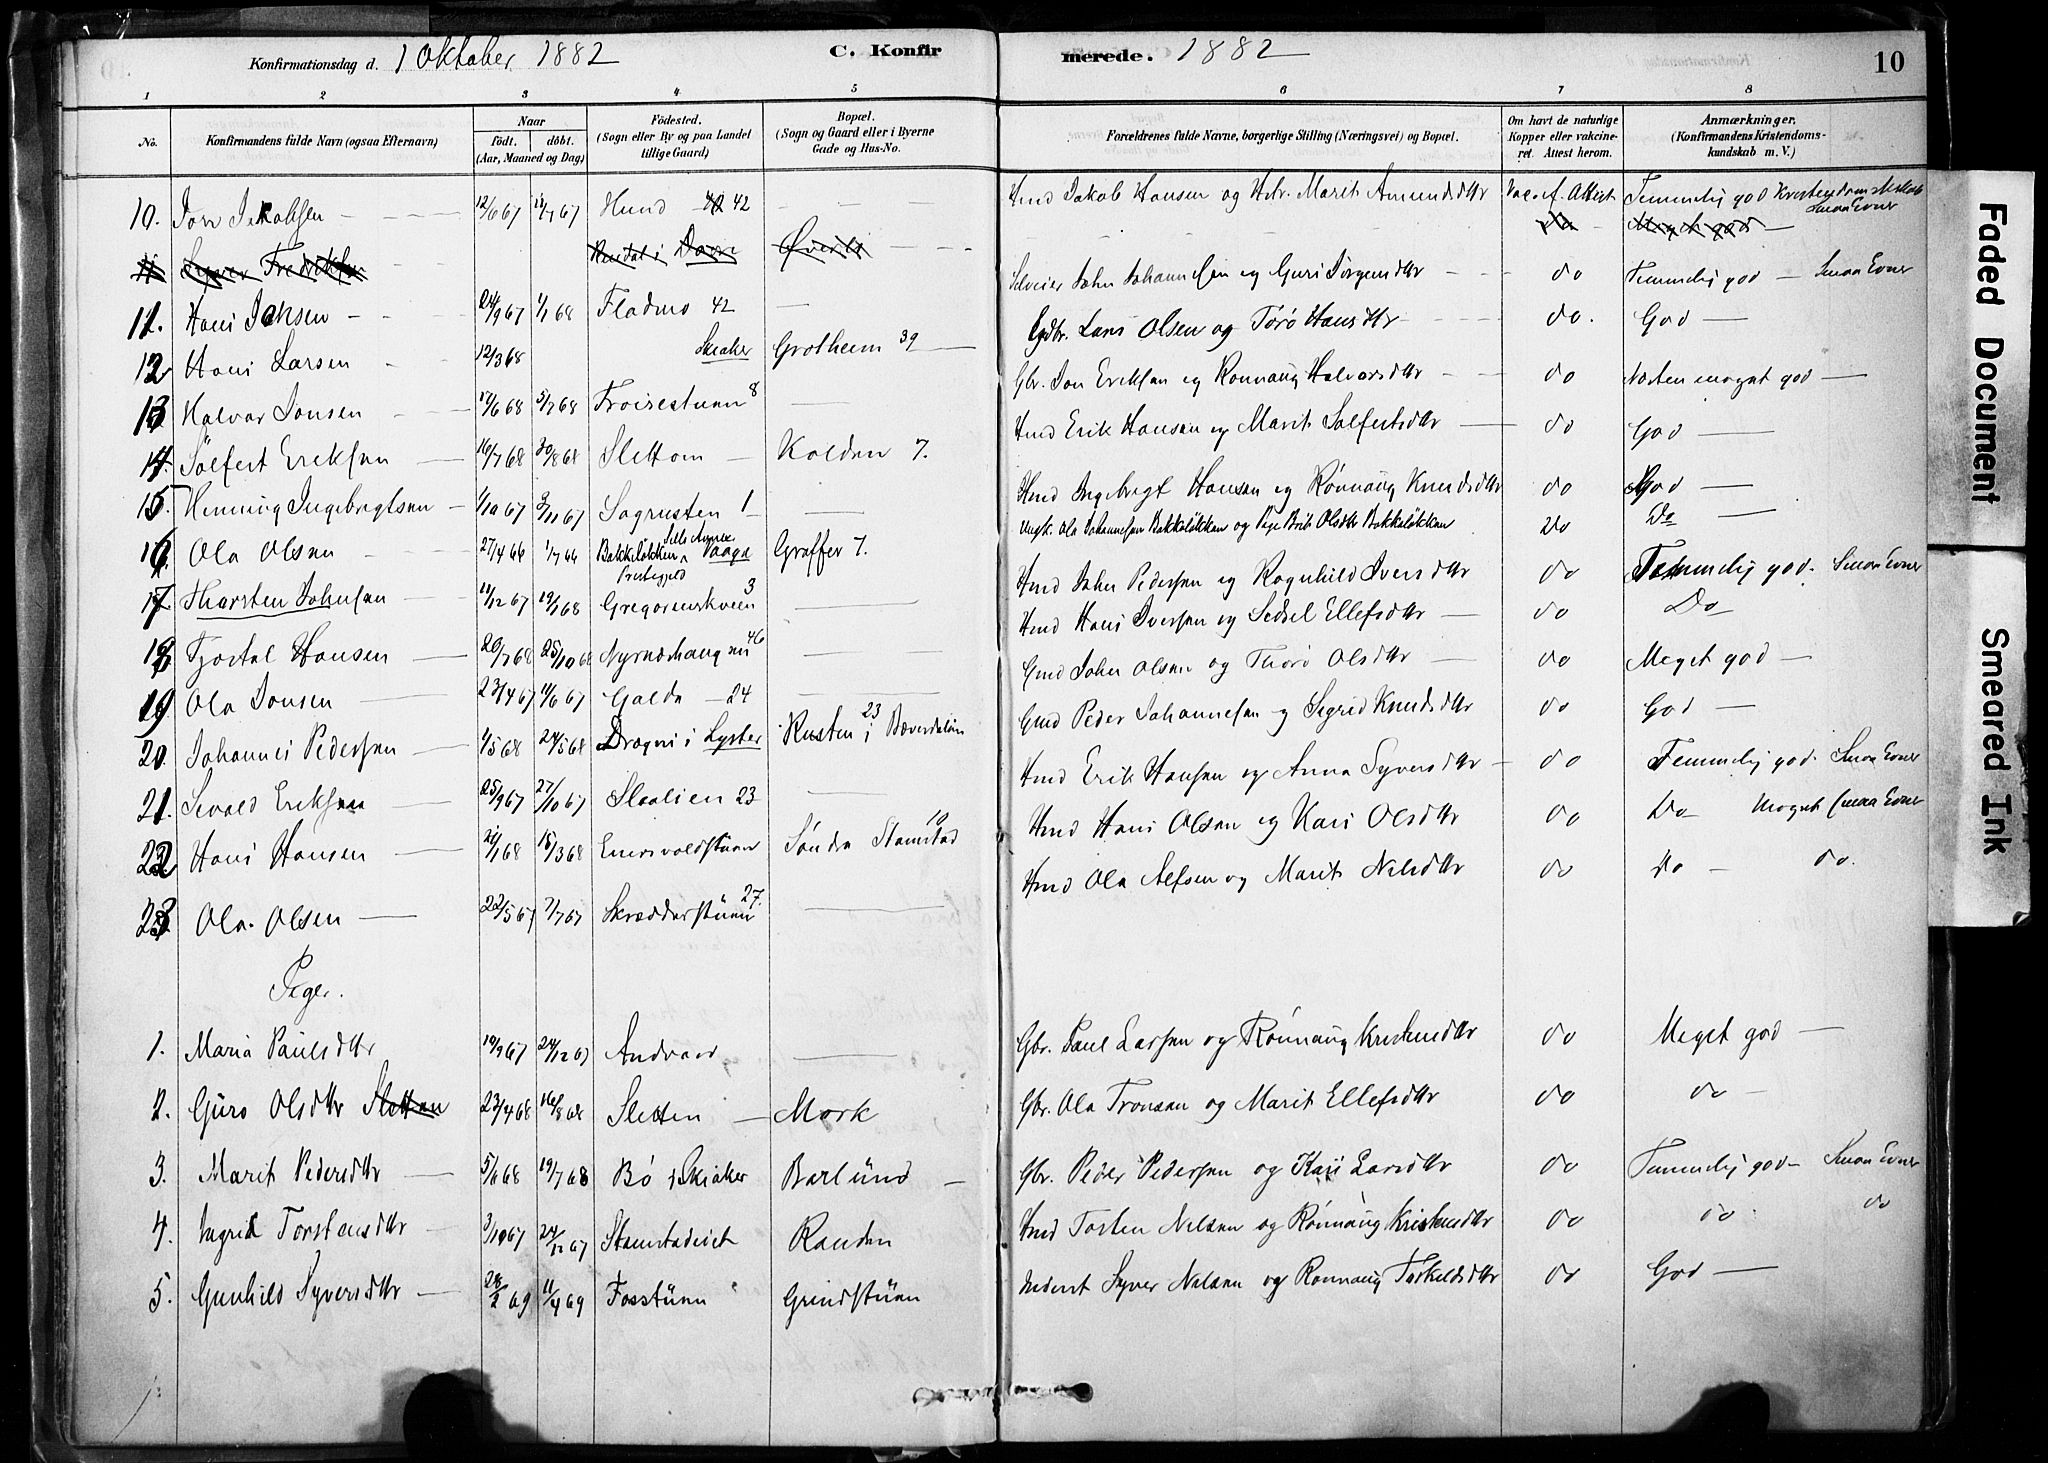 Konfirmationsdag d. 1 Oktober 1882 C. Konfir
merede. 1882 10
1 2 3 4 5 6 7 8
No.
Konfirmandens fulde Navn (ogsaa Efternavn)
Naar
födt. döbt.
(Aar, Maaned og Dag)
Födested.
(Sogn eller By og paa Landet
tillige Gaard)
Bopæl.
(Sogn og Gaard eller i Byerne
Gade og Hus-No.
Forældrenes fulde Navne, borgerlige Stilling (Næringsvei) og Bopæl.
Om havt de naturlige
Kopper eller vakcine-
ret. Attest herom.
Anmærkninger.
(Konfirmandens Kristendoms-
kundskab m. V.)
10. Jon Jakobsen 12/6 67 Hund 42 Hmd Jakob Hansen og Hstr. Marit Amundsdtr Vac. A. Attest Temmelig god Kristendomskundskab Smaa Evner
Syver Fredriksen i Dovre Øverli Do Meget god
11. Hans 24/9 67 1/1 68 Fladmo 42 John Johannesen og Guri Jørgensdtr do Temmelig god Smaa Evner
12 Hans Larsen 12/3 68 Skiaker Grotheim 39 Gbr. Lars Olsen og Torø Hansdtr do. God
13 Halvor Jonsen 17/6 68 5/7 68 Froisestuen 8 Gbr. Jon Eriksen og Rønnaug Halvorsdtr do Næsten meget god
14. Sølfest Eriksen 16/7 68 30/8 68 Slettom Kolden 7. Hmd Erik Hansen og Marit Solfestsdtr do God
15. Henning Ingebrigtsen 1/10 67 3/11 67 Sagrusten 1 Hmd Ingebrigt Hansen og Rønnaug Knudsdtr do God
16. Ola Olsen 27/4 66 1/7 66 Bakkeløkken Sells Annex Vaage Prestegjeld Graffer 7. Ungk. Ola Johannesen Bakkeløkken og Pige Brit Olsdtr Bakkeløkken Do Do
17 Thorsten Johnsen 11/12 67 19/1 68 3 Hmd John Pedersen og Ragnhild Iversdtr do Temmelig god. Smaa Evner
18 Tjostel Hansen 20/7 68 25/10 68 46 Hmd Hans Iversen og Sidsel Ellefsdtr do Do
19 Ola Jonsen 23/4 67 11/6 67 Galde 24 Gmd John Olsen og Thorø Olsdtr do Meget god
20. Johannes Pedersen 1/5 68 24/5 68 Dragni i Lyster Rusten 23 i Bæverdalen Gmd Peder Johannesen og Sigrid Knudsdtr do God
21. Sivald Eriksen 25/9 67 27/10 67 Slaalien 23 Hmd Erik Hansen og Anna Syversdtr do Temmelig god. Smaa Evner
22 Hans Hansen 21/1 68 15/3 68 Søndre Stamstad 10 Hmd Hans Olsen og Kari Olsdtr do Do Meget smaa Evner
23 Ola Olsen 22/5 67 7/7 67 Skrædderstuen 27. Hmd Ola Alfsen og Marit Nilsdtr do do do.
Piger.
1. Maria Paulsdtr 19/9 67 24/12 67 Andvord Gbr. Paul Larsen og Rønnaug Kristensdtr do Meget god
2. Guro Olsdtr Sletten 23/4 68 16/8 68 Sletten Mork Gbr. Ola Tronsen og Marit Ellefsdtr do do
3. Marit Pedersdtr 5/6 68 19/7 68 Bø i Skiaker Barlund Gbr. Peder Pedersen og Kari Larsdtr do Temmelig god Smaa Evner
4. Ingrid Torstensdtr 3/10 67 24/12 67 Randen Hmd Tosten Nilsen og Rønnaug Kristensdtr do do do
5. Gunhild Syversdtr 28/2 69 11/4 69 Fosstuen Grindstuen Inderst Syver Nilsen og Rønnaug Torkeldsdtr do God
Faded Document
Smeared Ink